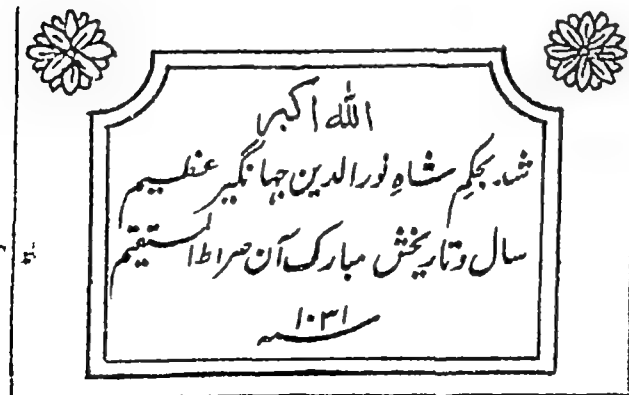 الله اکبر
شد بحکمِ شاہِ نورالدین جہانگیر عظیم
سال و تاریخش مبارک آن صراط المستقیم
۱۰۳۱